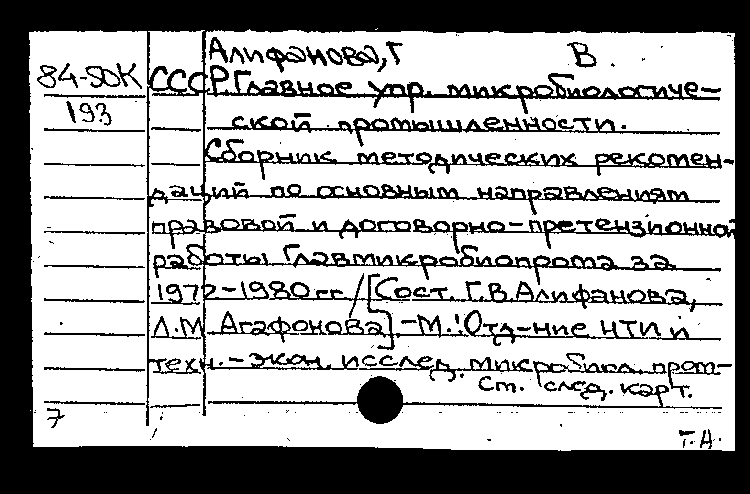 Алифанова, Г В.
84-50К СССР. Главное упр. микробиологиче-
193 ской промышленности.
Сборник методических рекомен-
даций по основным направлениям
правовой и договорно-претензионной
работы Главмикробиопрома за
1972-1980 гг / [Сост. Г.В. Алифанова,
Л.М Агафонова] - М.: Отд-ние НТИ и
техн.-экон. исслед. микробиол. пром-
Ст. след. карт.
7
Т.А.